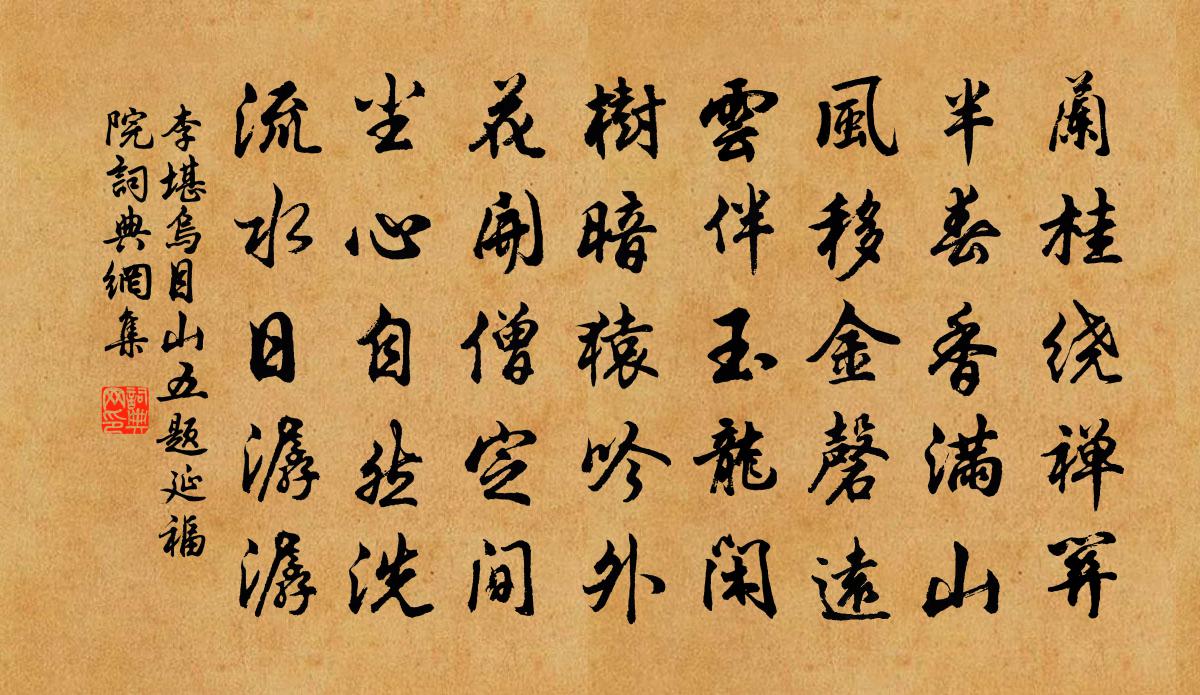 蘭桂绕禅關
半春香滿山
風移金磬遠
雲伴玉龍闲
樹暗猿吟外
花開僧定间
尘心自然洗
流水日潺潺
李堪烏目山五题延福
院詞典網集
詞典网印